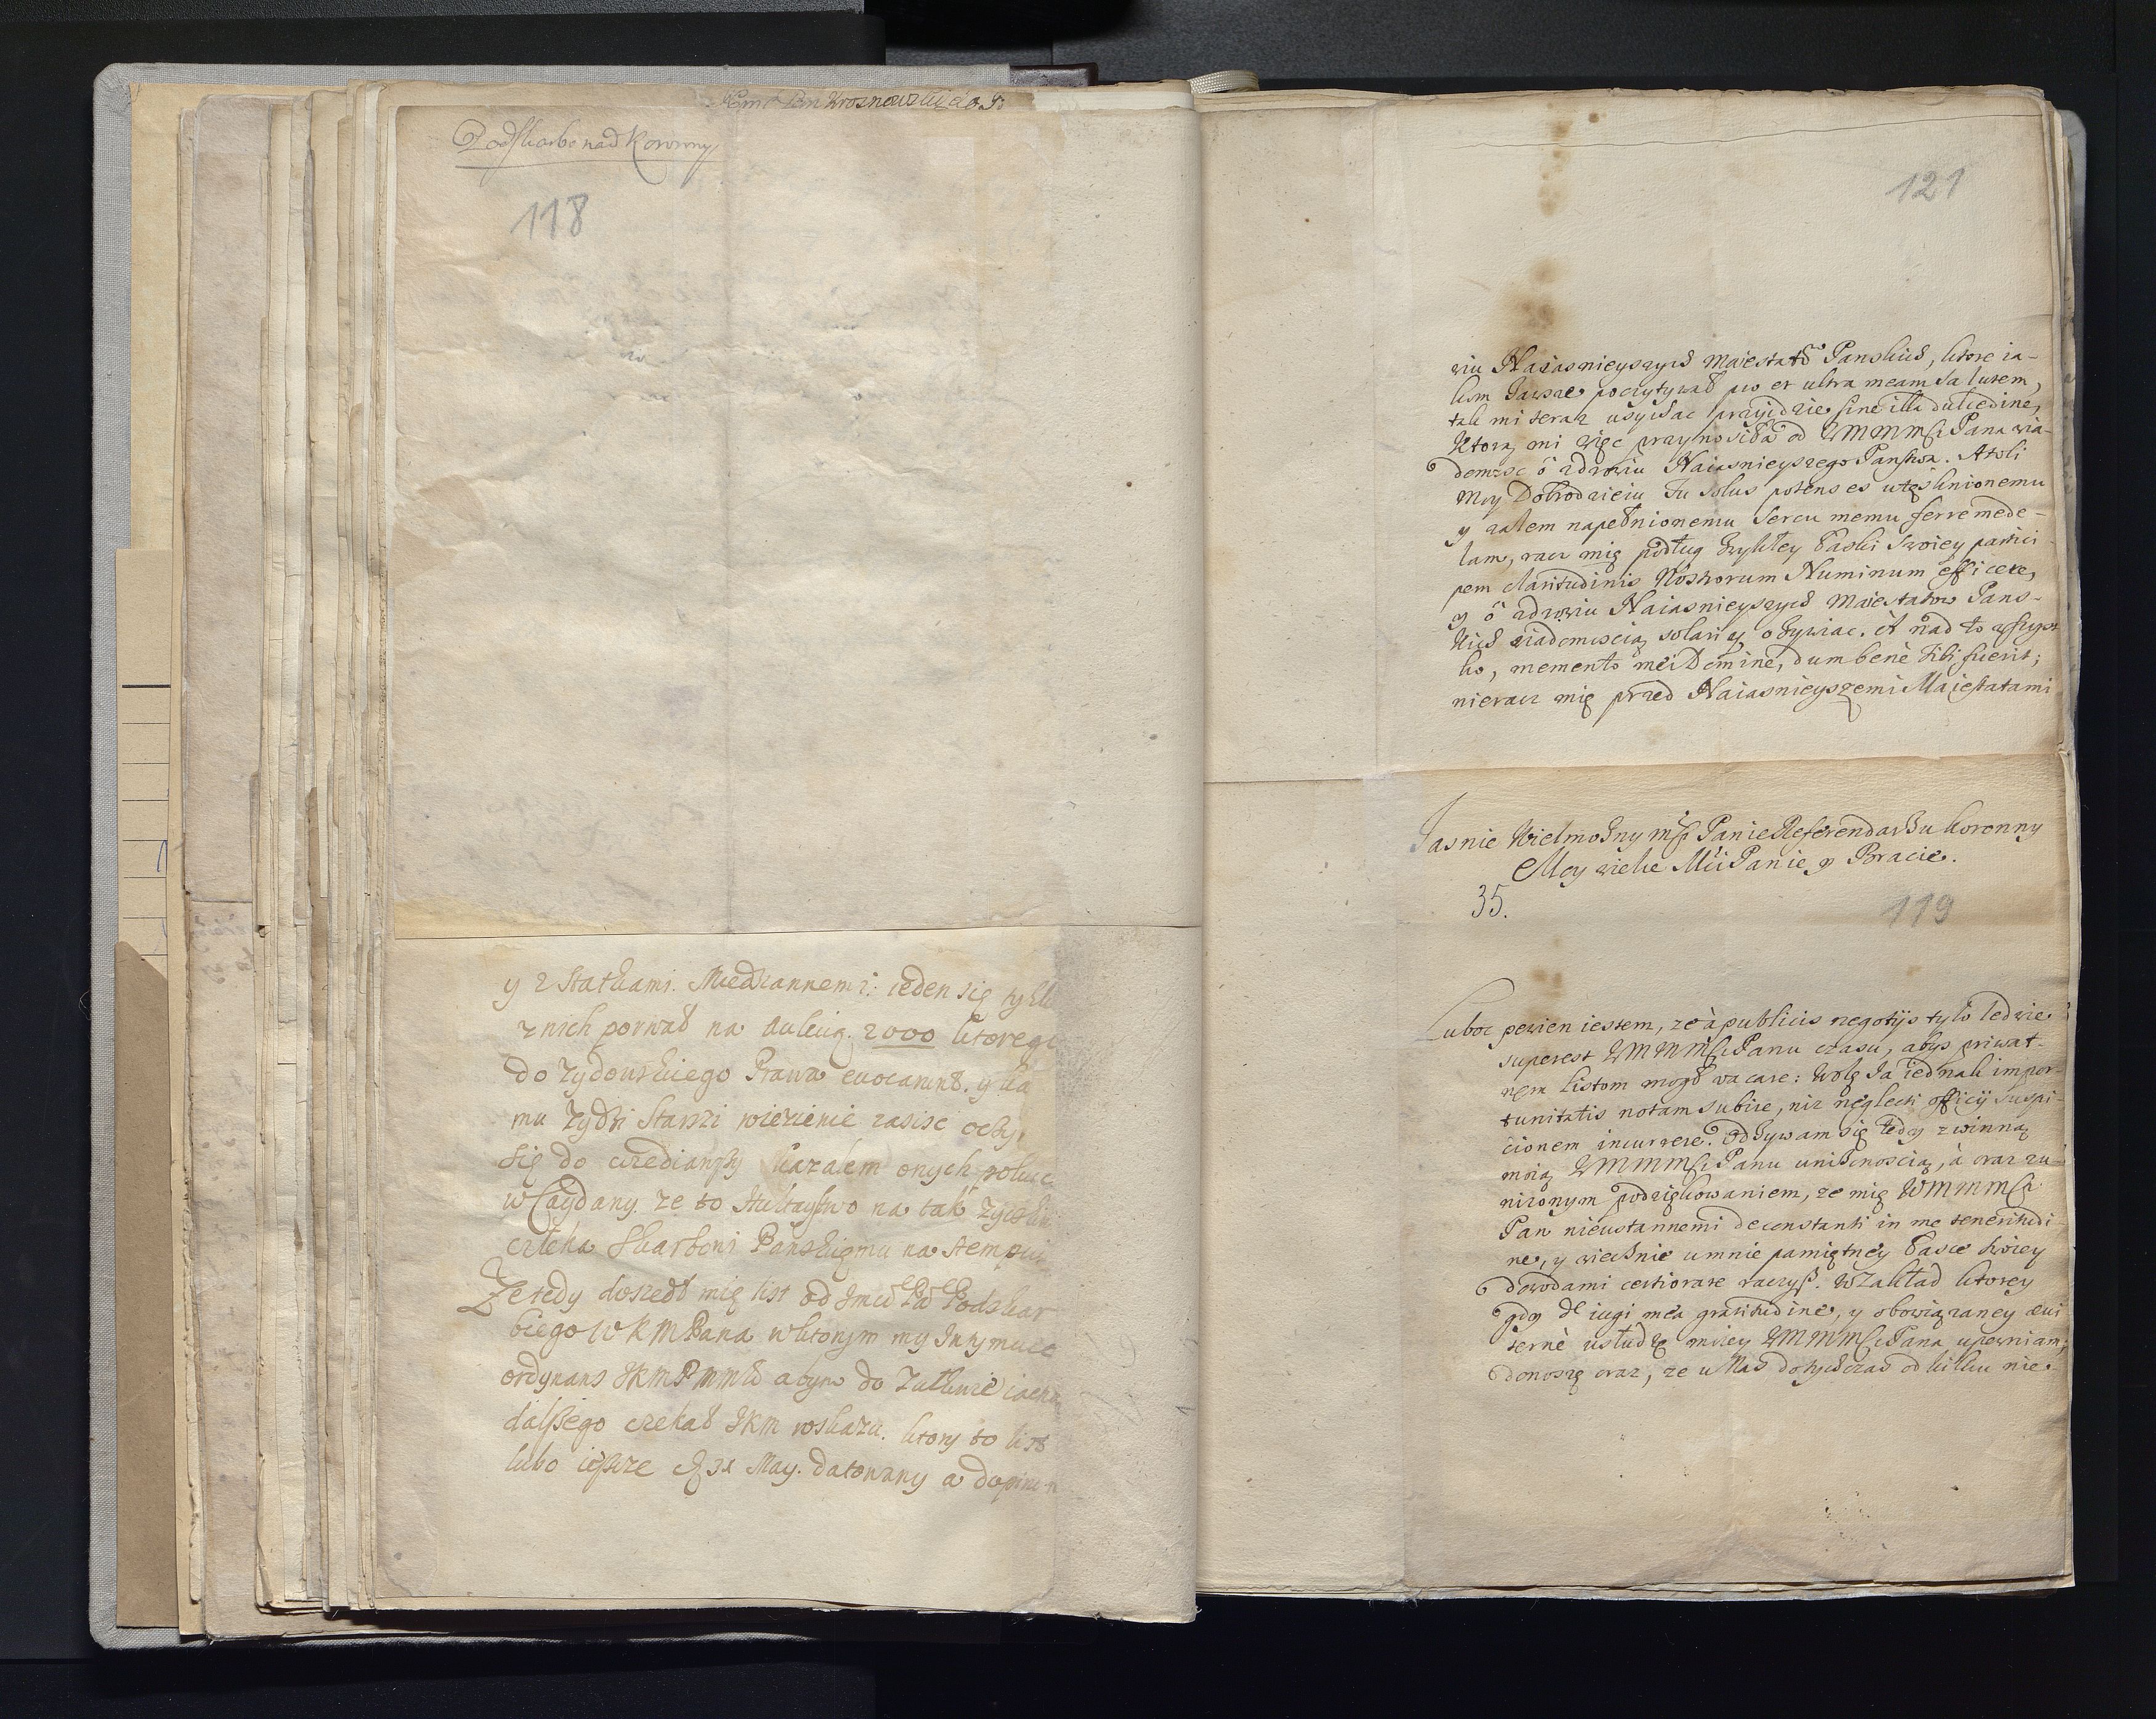 Jmć Pan Krosnowski do P.
Podskarbo nad Koronny
118
y z Statkami Miedziannemi: ieden się tylk
z nich porwał na dukcią. 2000 ktorego
do zydowskiego Prawa evocavinł. y ka
mu zydzi Starszi wiezienie zasisc
się do kazałem onych
w Caydany. ze to na tak
człeka Skarboni Panskiemu na
Ze tedy doszedł mię list od Jmci Pa Podskar
biego W K M Pana w ktorym my Intymuie
ordynans JKMPMMł abym do Zułkwie iacha
dalszego czekał JKM roskazu. ktory to list
lubo ieszcze 31 May. datowany a dopiro
121
wiu Naiasnieyszych Maiestatow Panskich, ktore ia-
kom zawsze poczytywał pro et ultra meam salutem,
tak mi teraz usychac przyidzie sine illa dulcedine,
ktorą mi więc przynosiła od WMMMści Pana wia-
domosc o zdrowiu Naiasnieyszego Panstwa. Atoli
Moy Dobrodzieiu Tu solus potens es utęsknionemu
y zalem napełnionemu sercu memu ferre mede-
lam, racz mię podług zwykłey łaski swoiey partici
pem claritudinis Nostrorum Numinum efficere,
y o zdrowiu Naiasnieyszych Maiestatow Pans-
kich wiadomoscią solari y ozywiac. A nad to wszyst
ko, memento mei Domine, dum benè tibi fuerit;
nieracz mię przed Naiasnieyszemi Maiestatami
Jasnie Wielmozny mści Panie Referendarzu koronny
Moy wielce Mći Panie y Bracie.
35.
119
Luboć pewien iestem, ze à publicis negotijs tylo ledwie
superest WMMMści Panu czasu, abys priwat-
nem listom mogł vacare: wolę Ja iednak impor-
tunitatis notam subire, niz neglecti officij suspi-
cionem incurrere. Odzywam się tedy z winną
mną WMMMści Panu unizonoscią, à oraz zu-
nizonym podziękowaniem, ze mię WMMMści
Pan nieustannemi de constanti in me teneritudi-
ne, y wiecznie u mnie pamiętney łasce swoiey
dowodami certiorare raczysz. W zakład ktorey
gdy de iugi mea gratitudine, y obowiązaney aevi
ternè usłudze moiey WMMMści Pana upewniam;
donoszę oraz, ze u Nas dotychczas od kilku nie-